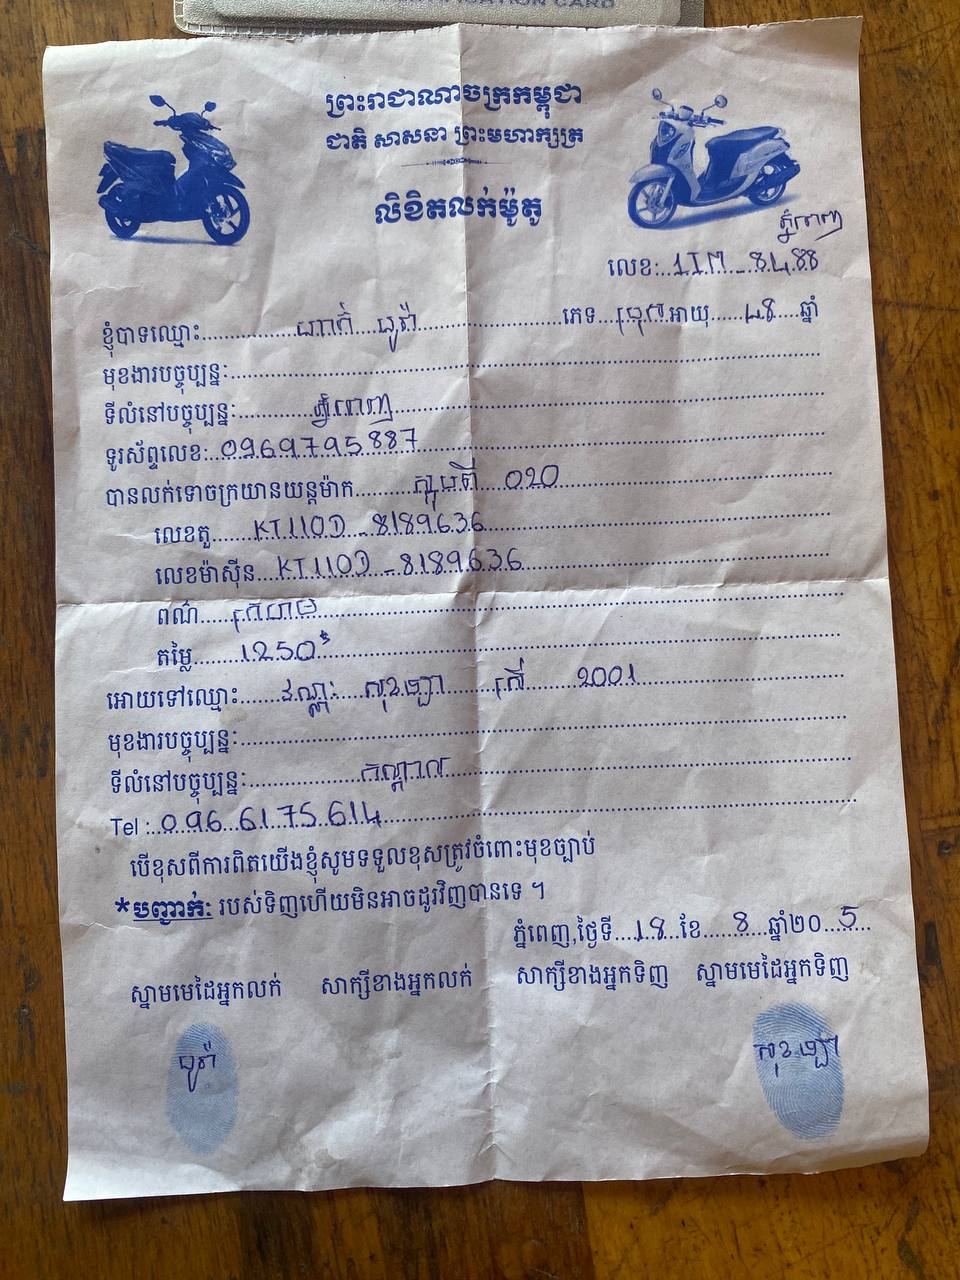 IDENTIFICATION CARD
ព្រះរាជាណាចក្រកម្ពុជា
ជាតិ សាសនា ព្រះមហាក្សត្រ
លិខិតលក់ម៉ូតូ
ភ្នំពេញ
លេខ:..1IM-8488
ខ្ញុំបាទឈ្មោះ............ភេទ...ប្រុស អាយុ.....48...ឆ្នាំ
មុខងារបច្ចុប្បន្ន:
ទីលំនៅបច្ចុប្បន្ន:...ភ្នំពេញ
ទូរស័ព្ទលេខ:..0969795887
បានលក់ទោចក្រយានយន្តម៉ាក.......ស្កុបពី 020
លេខតួ.....KT110D-8189636
លេខម៉ាស៊ីន...KT110D-8189636
ពណ៌.....ក្រហម
តម្លៃ......1250$
អោយទៅឈ្មោះ.....វណ្ណៈ សុខឡា ស្រី 2001
មុខងារបច្ចុប្បន្ន:
ទីលំនៅបច្ចុប្បន្ន:......កណ្តាល
Tel :..096 6175614
បើខុសពីការពិតយើងខ្ញុំសូមទទួលខុសត្រូវចំពោះមុខច្បាប់
*បញ្ជាក់: របស់ទិញហើយមិនអាចដូរវិញបានទេ ។
ភ្នំពេញ,ថ្ងៃទី....18...ខែ.....8...ឆ្នាំ២០...5
ស្នាមមេដៃអ្នកលក់ សាក្សីខាងអ្នកលក់ សាក្សីខាងអ្នកទិញ ស្នាមមេដៃអ្នកទិញ
សុខឡា